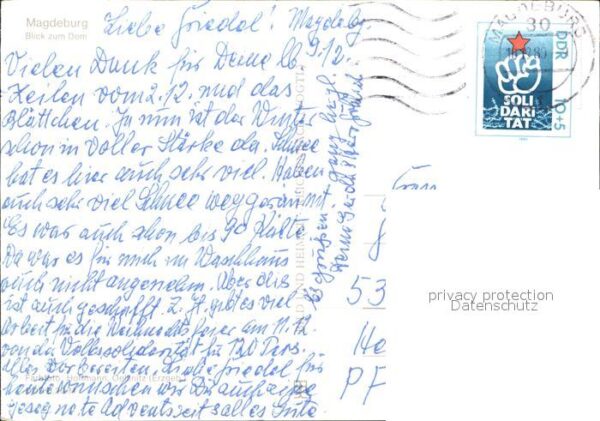 Magdeburg
Blick zum Dom
Liebe Friedel! Magdebg.
Vielen Dank für Deine lb. 9.12.
Zeilen vom 2.12. und das
Blättchen. Ja nun ist der Winter
schon in voller Stärke da. Schnee
hat es hier auch sehr viel. Haben
auch sehr viel Schnee weggeräumt.
Es war auch schon bis 9° Kälte
Da war es für mich im Waschhaus
auch nicht angenehm. Aber das
ist auch geschafft. Z. Zt. gibt es viel
Arbeit für die Weihnachtsfeier am 11.12.
von der Volkssolidarität für 120 Pers.
alles vorbereiten. Liebe Friedel für
heute wünschen wir Dir auch eine
gesegnete Adventszeit & alles Gute.
Es grüßen Dich ganz herzl.
MAGDEBURG
30
DDR
SOLI
DARI
TÄT
10+5
53
PF
privacy protection
Datenschutz